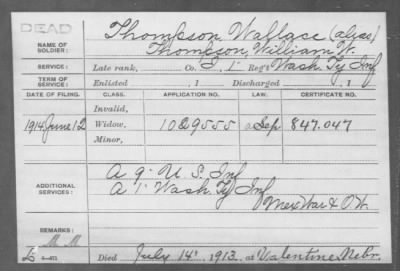 DEAD
NAME OF SOLDIER:
Thompson Wallace (alias)
Thompson, William W.
SERVICE:
Late rank, Co. I, 1" Reg't Wash. Ty Inf
TERM OF SERVICE:
Enlisted , 1 Discharged , 1
DATE OF FILING. CLASS. APPLICATION NO. LAW. CERTIFICATE NO.
Invalid,
1914 June 12 Widow, 1029555 Sep 847.047
Minor,
ADDITIONAL SERVICES:
A 9" U. S. Inf
A 1" Wash. Ty Inf
Mex War & O.W.
REMARKS:
Died July 14", 1913, at Valentine Nebr.